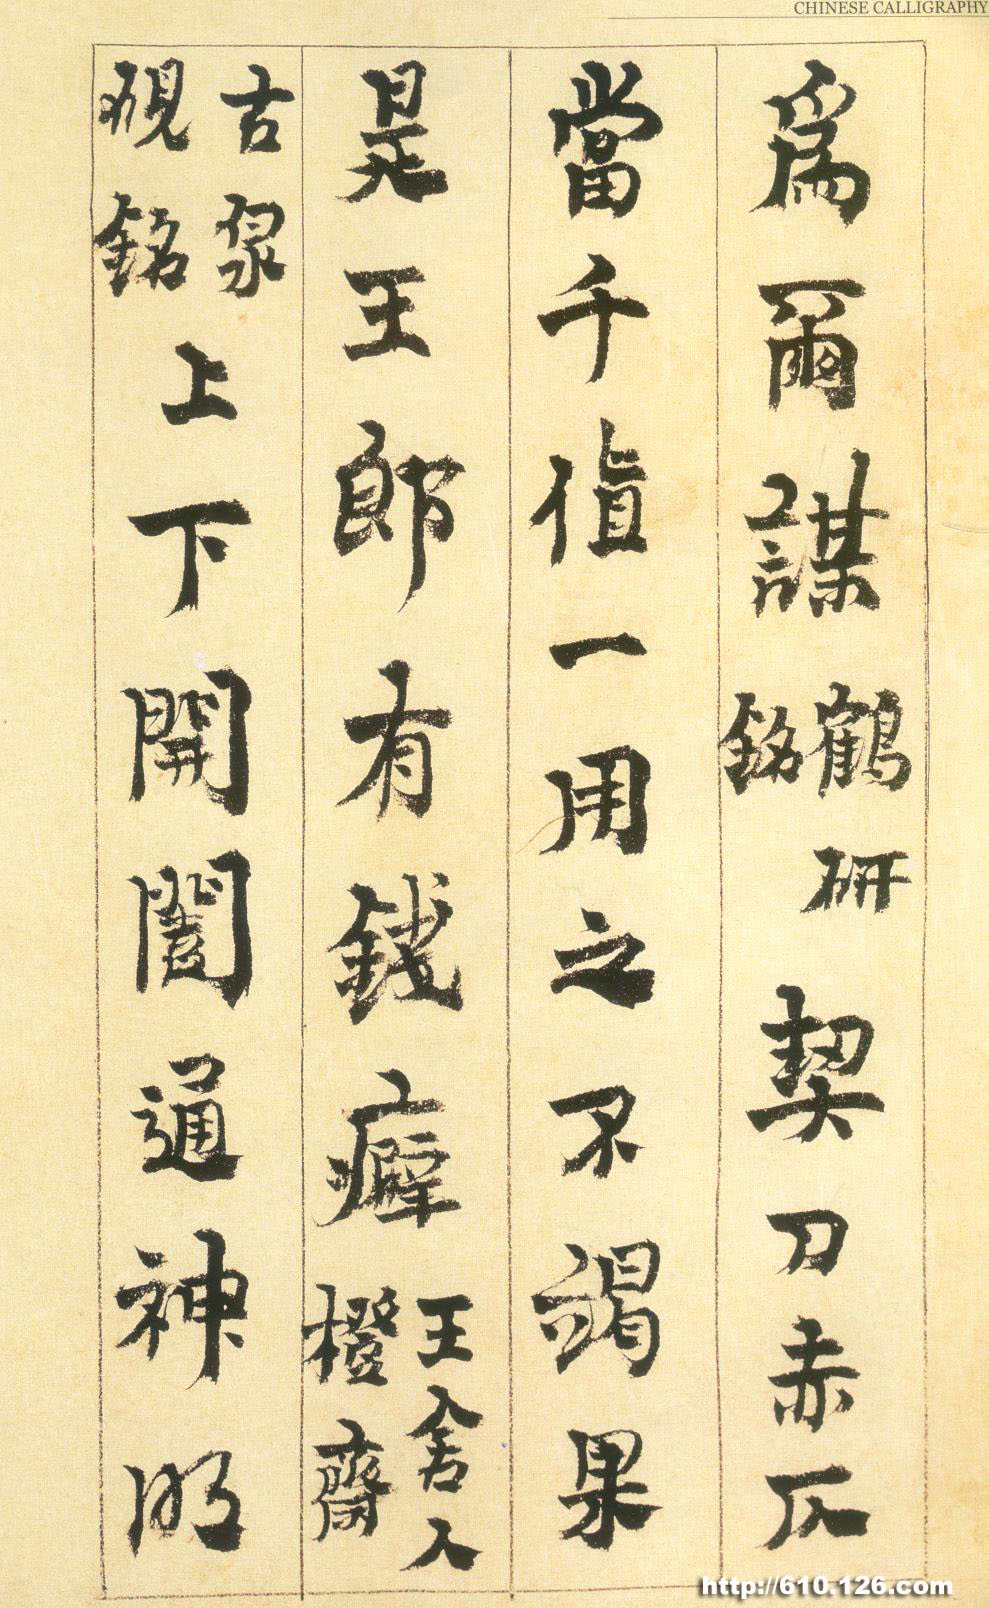 CHINESE CALLIGRAPHY
爲爾謀鶴研銘契刀赤仄
當千值一用之不竭果
是王郎有錢癖王舍人橙齋
古泉硯銘上下開闔通神明
http://610.126.com